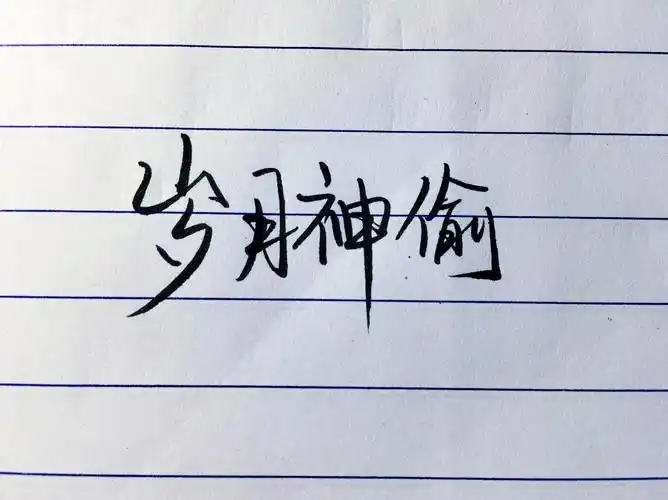 岁月神偷